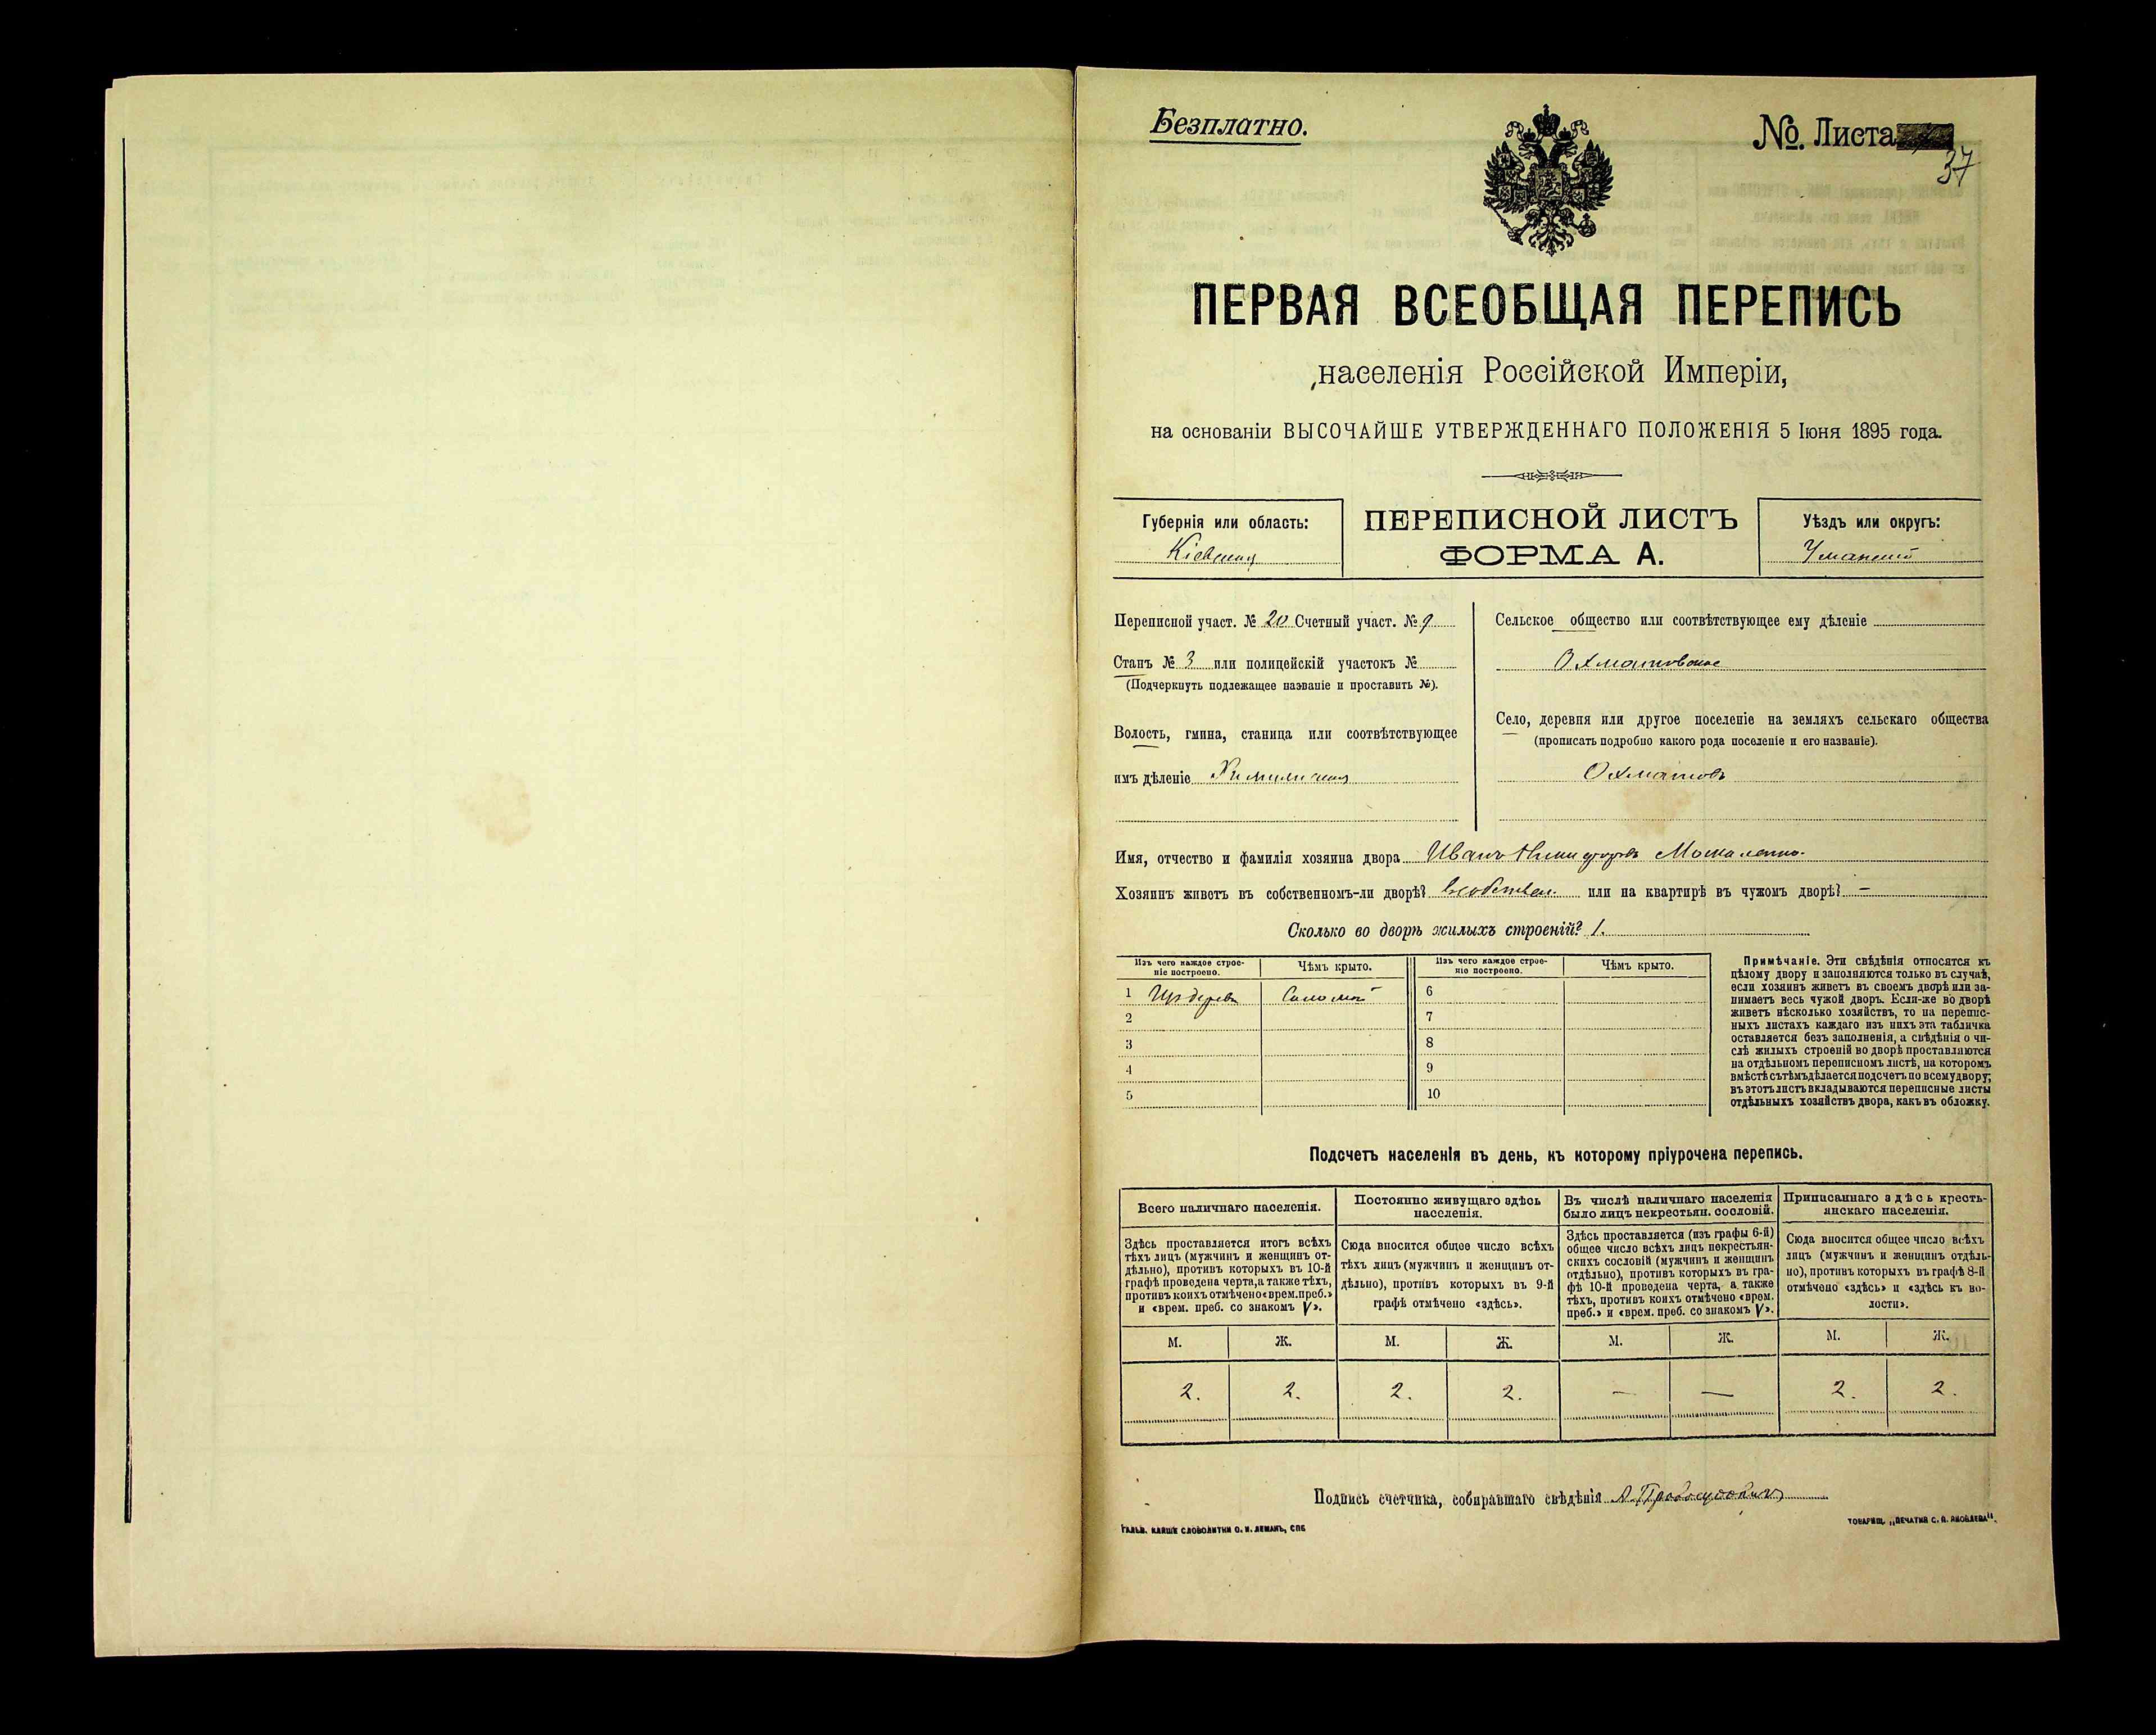 Безплатно.
№. Листа
37
ПЕРВАЯ ВСЕОБЩАЯ ПЕРЕПИСЬ
населенія Россійской Имперіи,
на основаніи ВЫСОЧАЙШЕ УТВЕРЖДЕННАГО ПОЛОЖЕНІЯ 5 Іюня 1895 года.
Губернія или область:
Кіевская
ПЕРЕПИСНОЙ ЛИСТЪ
ФОРМА А.
Уѣздъ или округъ:
Уманскій
Переписной участ. № 20 Счетный участ. № 9
Станъ № 3 или полицейскій участокъ №
(Подчеркнуть подлежащее названіе и проставить №).
Волость, гмина, станица или соотвѣтствующее
имъ дѣленіе
Сельское общество или соотвѣтствующее ему дѣленіе
Охматовское
Село, деревня или другое поселеніе на земляхъ сельскаго общества
(прописать подробно какого рода поселеніе и его названіе).
Охматовъ
Имя, отчество и фамилія хозяина двора Иванъ
Хозяинъ живетъ въ собственномъ-ли дворѣ? въ собствен. или на квартирѣ въ чужомъ дворѣ? –
Сколько во дворѣ жилыхъ строеній? 1.
Изъ чего каждое строе-
ніе построено.
Чѣмъ крыто.
Изъ чего каждое строе-
ніе построено.
Чѣмъ крыто.
1 Изъ дерева Соломой 6
2 7
3 8
4 9
5 10
Примѣчаніе. Эти свѣдѣнія относятся къ
цѣлому двору и заполняются только въ случаѣ,
если хозяинъ живетъ въ своемъ дворѣ или за-
нимаетъ весь чужой дворъ. Если-же во дворѣ
живетъ нѣсколько хозяйствъ, то на перепис-
ныхъ листахъ каждаго изъ нихъ эта табличка
оставляется безъ заполненія, а свѣдѣнія о чи-
слѣ жилыхъ строеній во дворѣ проставляются
на отдѣльномъ переписномъ листѣ, на которомъ
вмѣстѣ съ тѣмъ дѣлается подсчетъ по всему двору;
въ этотъ листъ вкладываются переписные листы
отдѣльныхъ хозяйствъ двора, какъ въ обложку.
Подсчетъ населенія въ день, къ которому пріурочена перепись.
Всего наличнаго населенія.
Здѣсь проставляется итогъ всѣхъ
тѣхъ лицъ (мужчинъ и женщинъ от-
дѣльно), противъ которыхъ въ 10-й
графѣ проведена черта, а также тѣхъ,
противъ коихъ отмѣчено «врем. преб.»
и «врем. преб. со знакомъ V».
Постоянно живущаго здѣсь
населенія.
Сюда вносится общее число всѣхъ
тѣхъ лицъ (мужчинъ и женщинъ от-
дѣльно), противъ которыхъ въ 9-й
графѣ отмѣчено «здѣсь».
Въ числѣ наличнаго населенія
было лицъ некрестьян. сословій.
Здѣсь проставляется (изъ графы 6-й)
общее число всѣхъ лицъ некрестьян-
скихъ сословій (мужчинъ и женщинъ
отдѣльно), противъ которыхъ въ гра-
фѣ 10-й проведена черта, а также
тѣхъ, противъ коихъ отмѣчено «врем.
преб.» и «врем. преб. со знакомъ V».
Приписаннаго здѣсь кресть-
янскаго населенія.
Сюда вносится общее число всѣхъ
лицъ (мужчинъ и женщинъ отдѣль-
но), противъ которыхъ въ графѣ 8-й
отмѣчено «здѣсь» и «здѣсь къ во-
лости».
М. Ж. М. Ж. М. Ж. М. Ж.
2. 2. 2. 2. — — 2. 2.
Подпись счетчика, собиравшаго свѣдѣнія
ГАЛЬВ. КЛИШЕ СЛОВОЛИТНИ О. И. ЛЕМАНЪ, СПБ
ТОВАРИЩ. „ПЕЧАТНЯ С. П. ЯКОВЛЕВА".